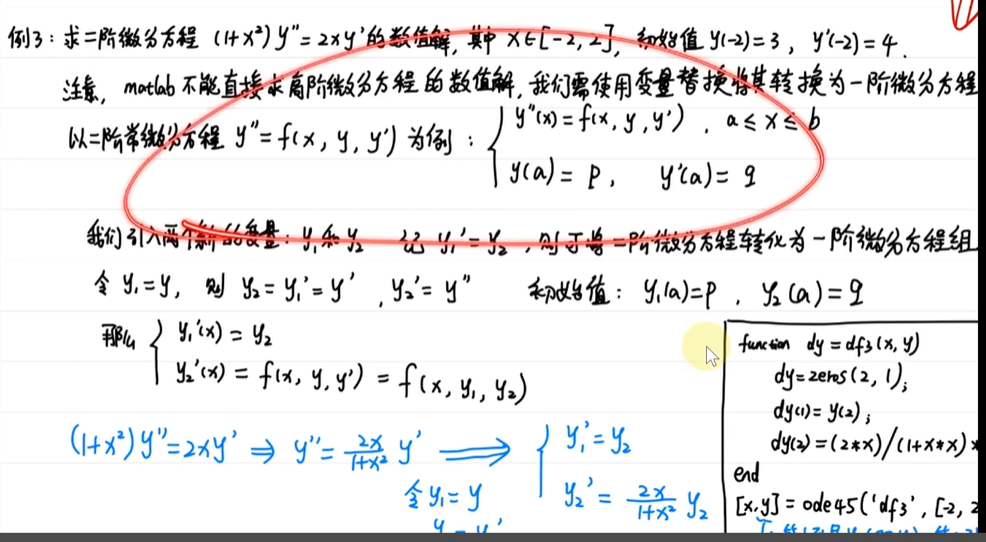 例3：求二阶微分方程 (1+x²)y''=2xy' 的数值解，其中 x∈[-2,2]，初始值 y(-2)=3，y'(-2)=4.
注意，matlab 不能直接求高阶微分方程的数值解，我们需使用变量替换将其转换为一阶微分方程
以二阶常微分方程 y''=f(x,y,y') 为例：{ y''(x)=f(x,y,y')，a≤x≤b
y(a)=p，y'(a)=q
我们引入两个新的变量：y₁和y₂ 记 y₁'=y₂，则可将二阶微分方程转化为一阶微分方程组
令 y₁=y，则 y₂=y₁'=y'，y₂'=y'' 初始值：y₁(a)=p，y₂(a)=q
那么 { y₁'(x)=y₂
y₂'(x)=f(x,y,y')=f(x,y₁,y₂)
(1+x²)y''=2xy' ⇒ y''=2x/(1+x²) y' ⟹ { y₁'=y₂
令 y₁=y
y₂'=2x/(1+x²) y₂
function dy=df3(x,y)
dy=zeros(2,1);
dy(1)=y(2);
dy(2)=(2*x)/(1+x*x)*
end
[x,y]=ode45('df3',[-2,2